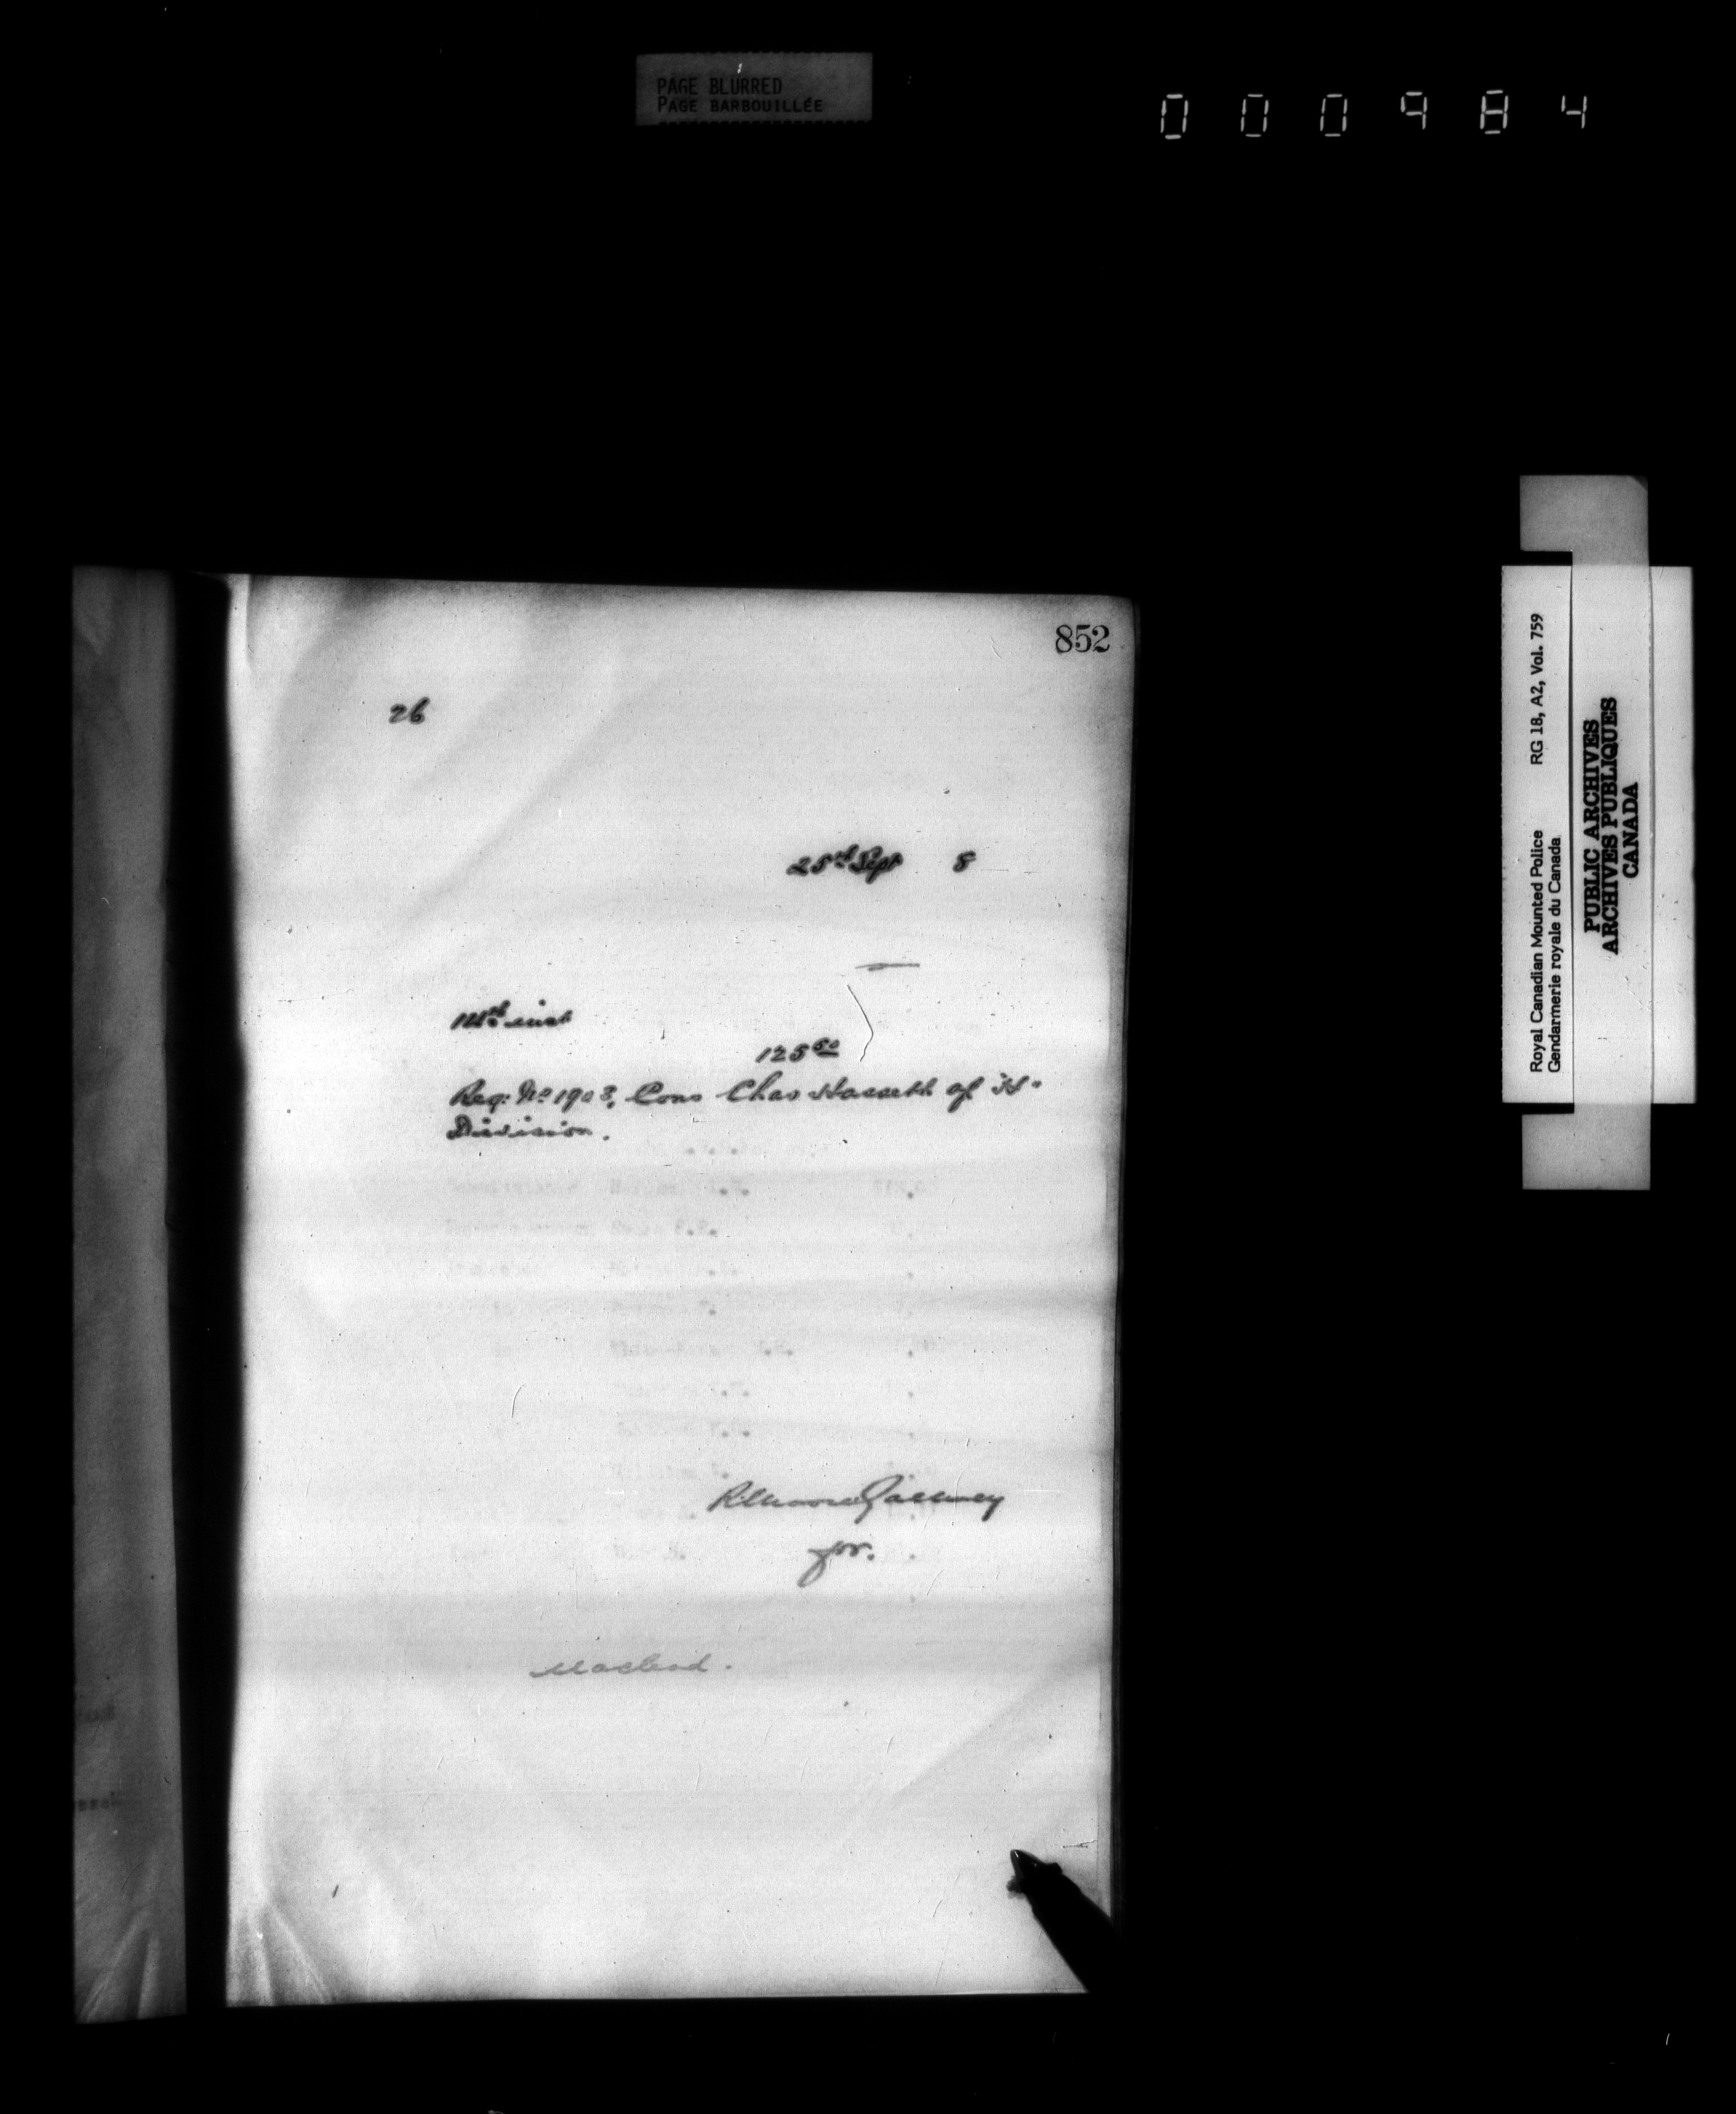 PAGE BLURRED
PAGE BARBOUILLÉE
000984
852
26
25th Sept 8
14th inst
125 50
Reg: No 1903, Cons Chas Hassett of "H"
Division.
for.
Macleod.
Royal Canadian Mounted Police RG 18, A2, Vol. 759
Gendarmerie royale du Canada
PUBLIC ARCHIVES
ARCHIVES PUBLIQUES
CANADA